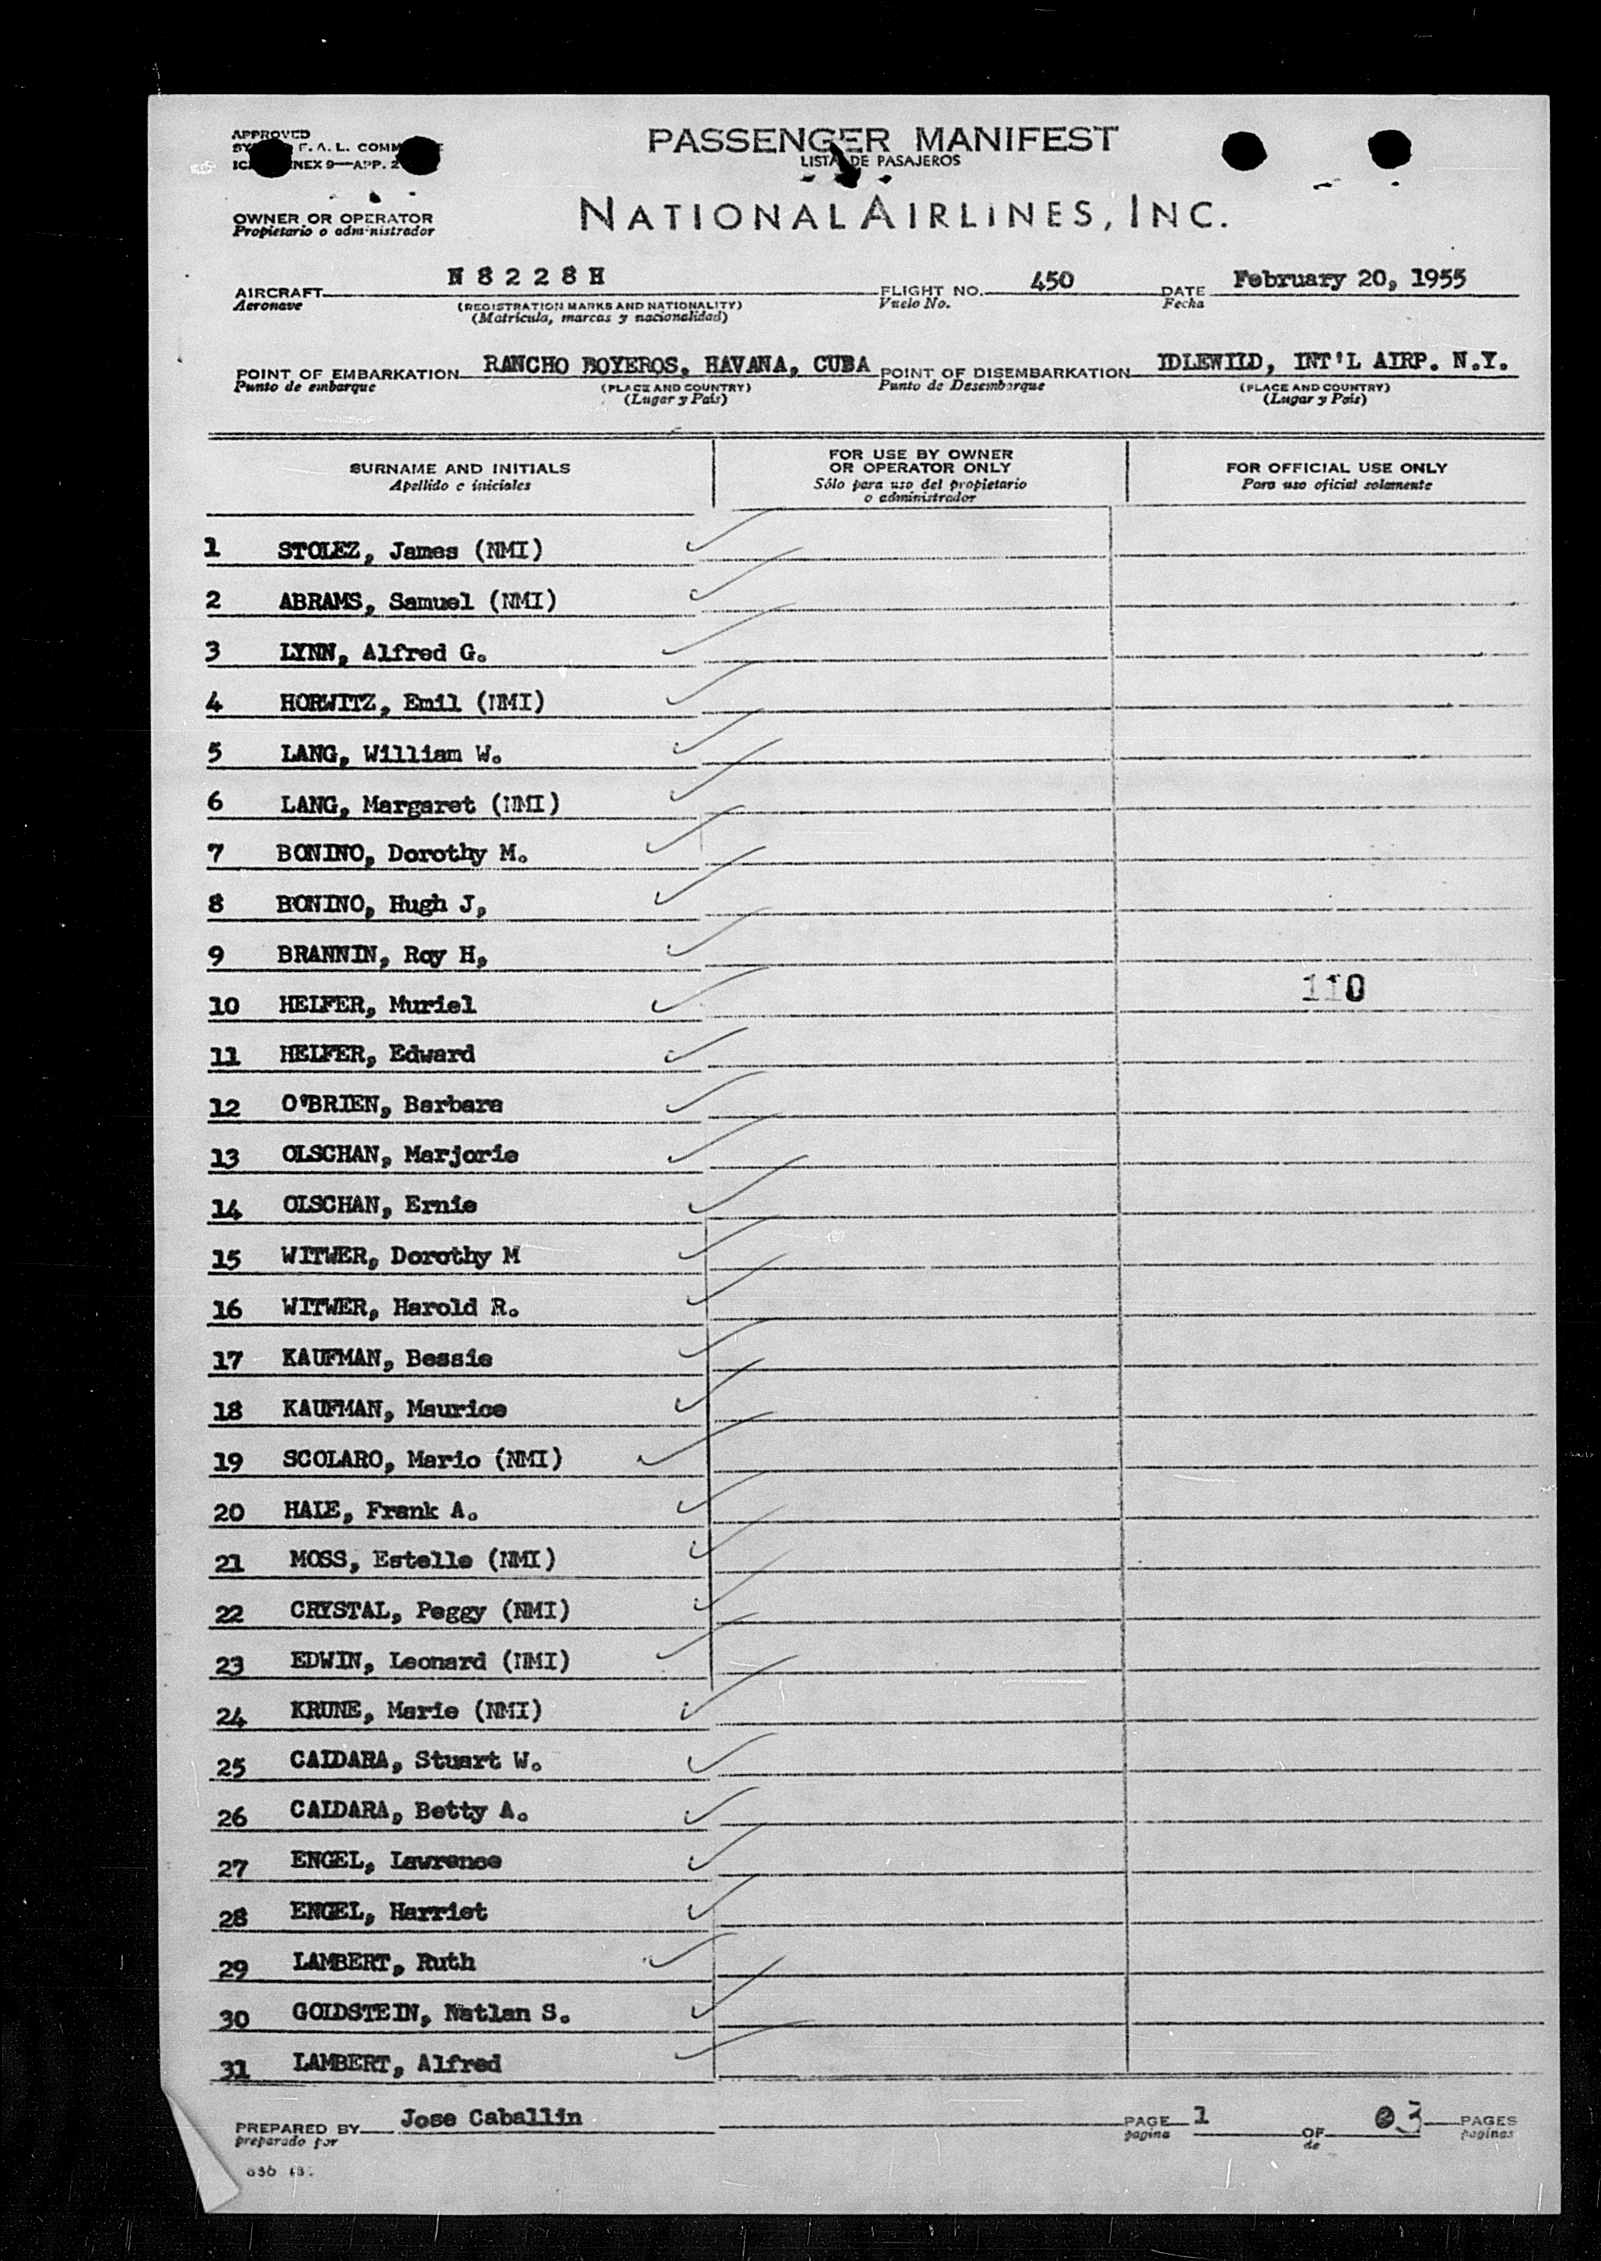 APPROVED
F. A. L.
ANNEX 9—APP. 2
PASSENGER MANIFEST
LISTA DE PASAJEROS
OWNER OR OPERATOR
Propietario o administrador
NATIONAL AIRLINES, INC.
AIRCRAFT N 8 2 2 8 H FLIGHT NO. 450 DATE February 20, 1955
Aeronave (REGISTRATION MARKS AND NATIONALITY) Vuelo No. Fecha
(Matrícula, marcas y nacionalidad)
POINT OF EMBARKATION RANCHO BOYEROS, HAVANA, CUBA POINT OF DISEMBARKATION IDLEWILD, INT'L AIRP. N.Y.
Punto de embarque (PLACE AND COUNTRY) Punto de Desembarque (PLACE AND COUNTRY)
(Lugar y País) (Lugar y País)
SURNAME AND INITIALS
Apellido e iniciales
FOR USE BY OWNER
OR OPERATOR ONLY
Sólo para uso del propietario
o administrador
FOR OFFICIAL USE ONLY
Para uso oficial solamente
1 STOLEZ, James (NMI)
2 ABRAMS, Samuel (NMI)
3 LYNN, Alfred G.
4 HORWITZ, Emil (NMI)
5 LANG, William W.
6 LANG, Margaret (NMI)
7 BONINO, Dorothy M.
8 BONINO, Hugh J,
9 BRANNIN, Roy H,
110
10 HELFER, Muriel
11 HELFER, Edward
12 O'BRIEN, Barbara
13 OLSCHAN, Marjorie
14 OLSCHAN, Ernie
15 WITWER, Dorothy M
16 WITWER, Harold R.
17 KAUFMAN, Bessie
18 KAUFMAN, Maurice
19 SCOLARO, Mario (NMI)
20 HALE, Frank A.
21 MOSS, Estelle (NMI)
22 CRYSTAL, Peggy (NMI)
23 EDWIN, Leonard (NMI)
24 KRUNE, Marie (NMI)
25 CALDARA, Stuart W.
26 CALDARA, Betty A.
27 ENGEL, Lawrence
28 ENGEL, Harriet
29 LAMBERT, Ruth
30 GOLDSTEIN, Natlan S.
31 LAMBERT, Alfred
PREPARED BY Jose Caballin PAGE 1 OF 3 PAGES
preparado por pagina de paginas